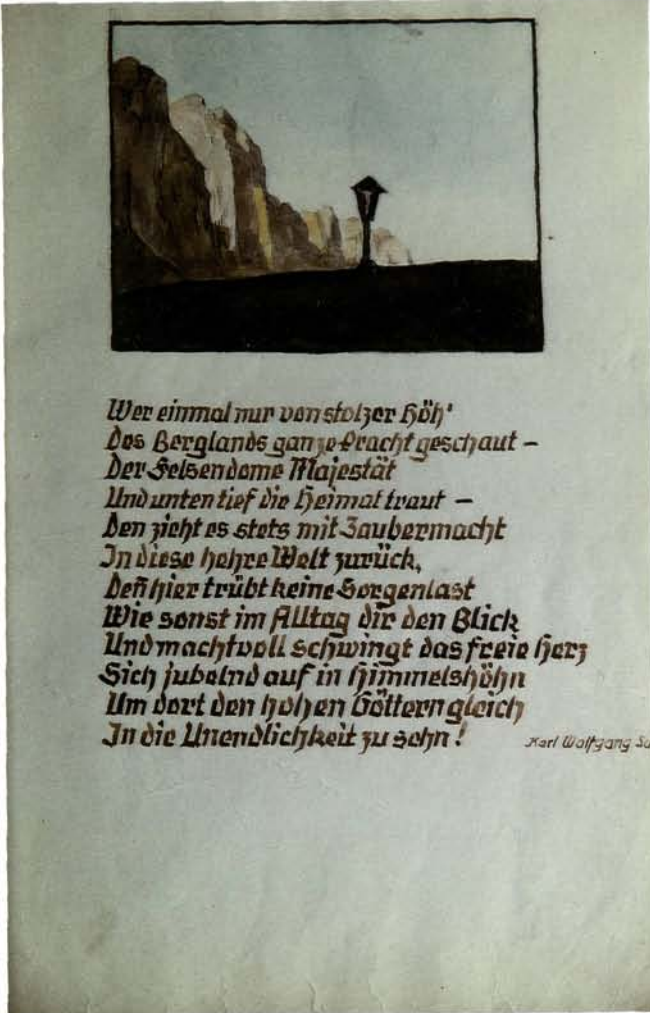 Wer einmal nur von stolzer Höh'
Des Berglands ganze Pracht geschaut –
Der Felsendome Majestät
Und unten tief die Heimat traut –
Den zieht es stets mit Zaubermacht
In diese hehre Welt zurück,
Deñ hier trübt keine Sorgenlast
Wie sonst im Alltag dir den Blick
Und machtvoll schwingt das freie Herz
Sich jubelnd auf in Himmelshöhn
Um dort den hohen Göttern gleich
In die Unendlichkeit zu sehn!
Karl Wolfgang